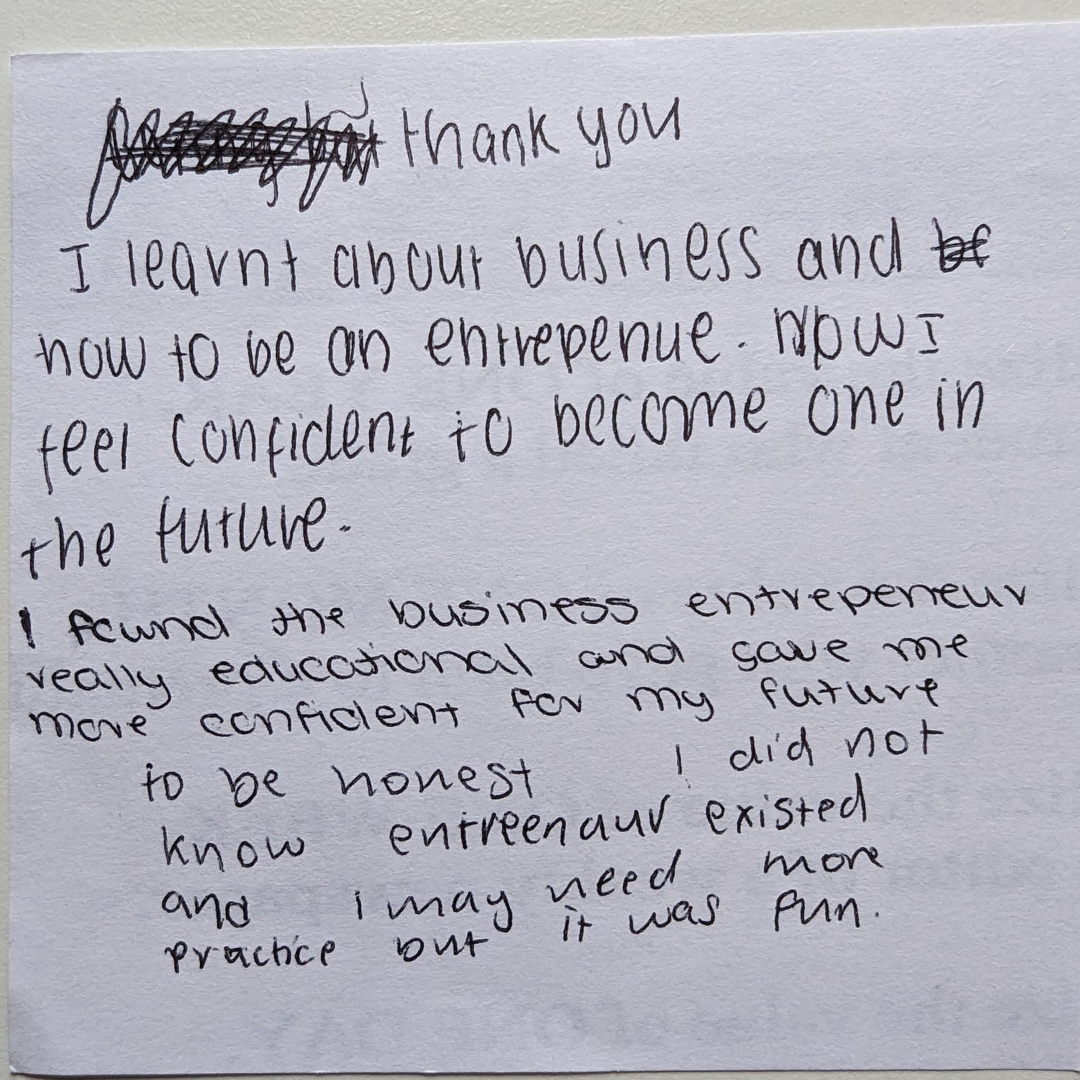 thank you
I learnt about business and
how to be an entrepenue. Now I
feel confident to become one in
the future.
I found the business entrepeneur
really educational and gave me
more confident for my future
to be honest I did not
know entreenaur existed
and i may need more
practice but it was fun.